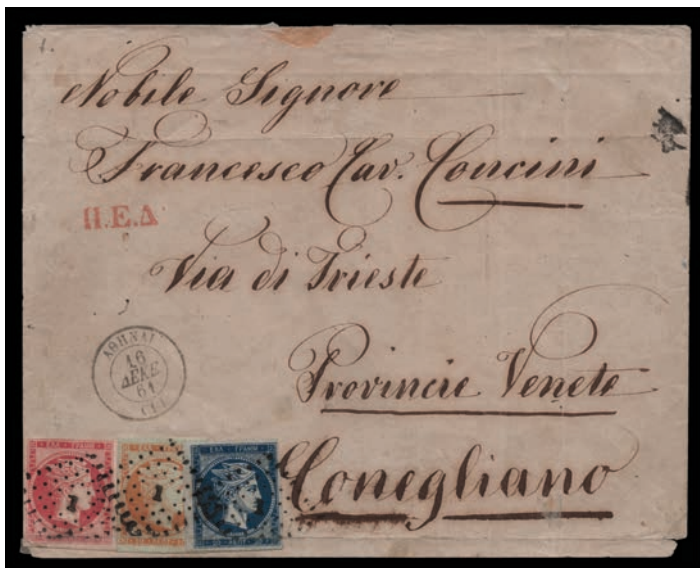 Nobile Signore
Francesco Cav. Concini
Π.Ε.Δ
Via di Trieste
ΑΘΗΝΑΙ
16
ΔΕΚΕ.
61
Provincie Venete
Conegliano
ΕΛΛ ΓΡΑΜΜ
1
1
1